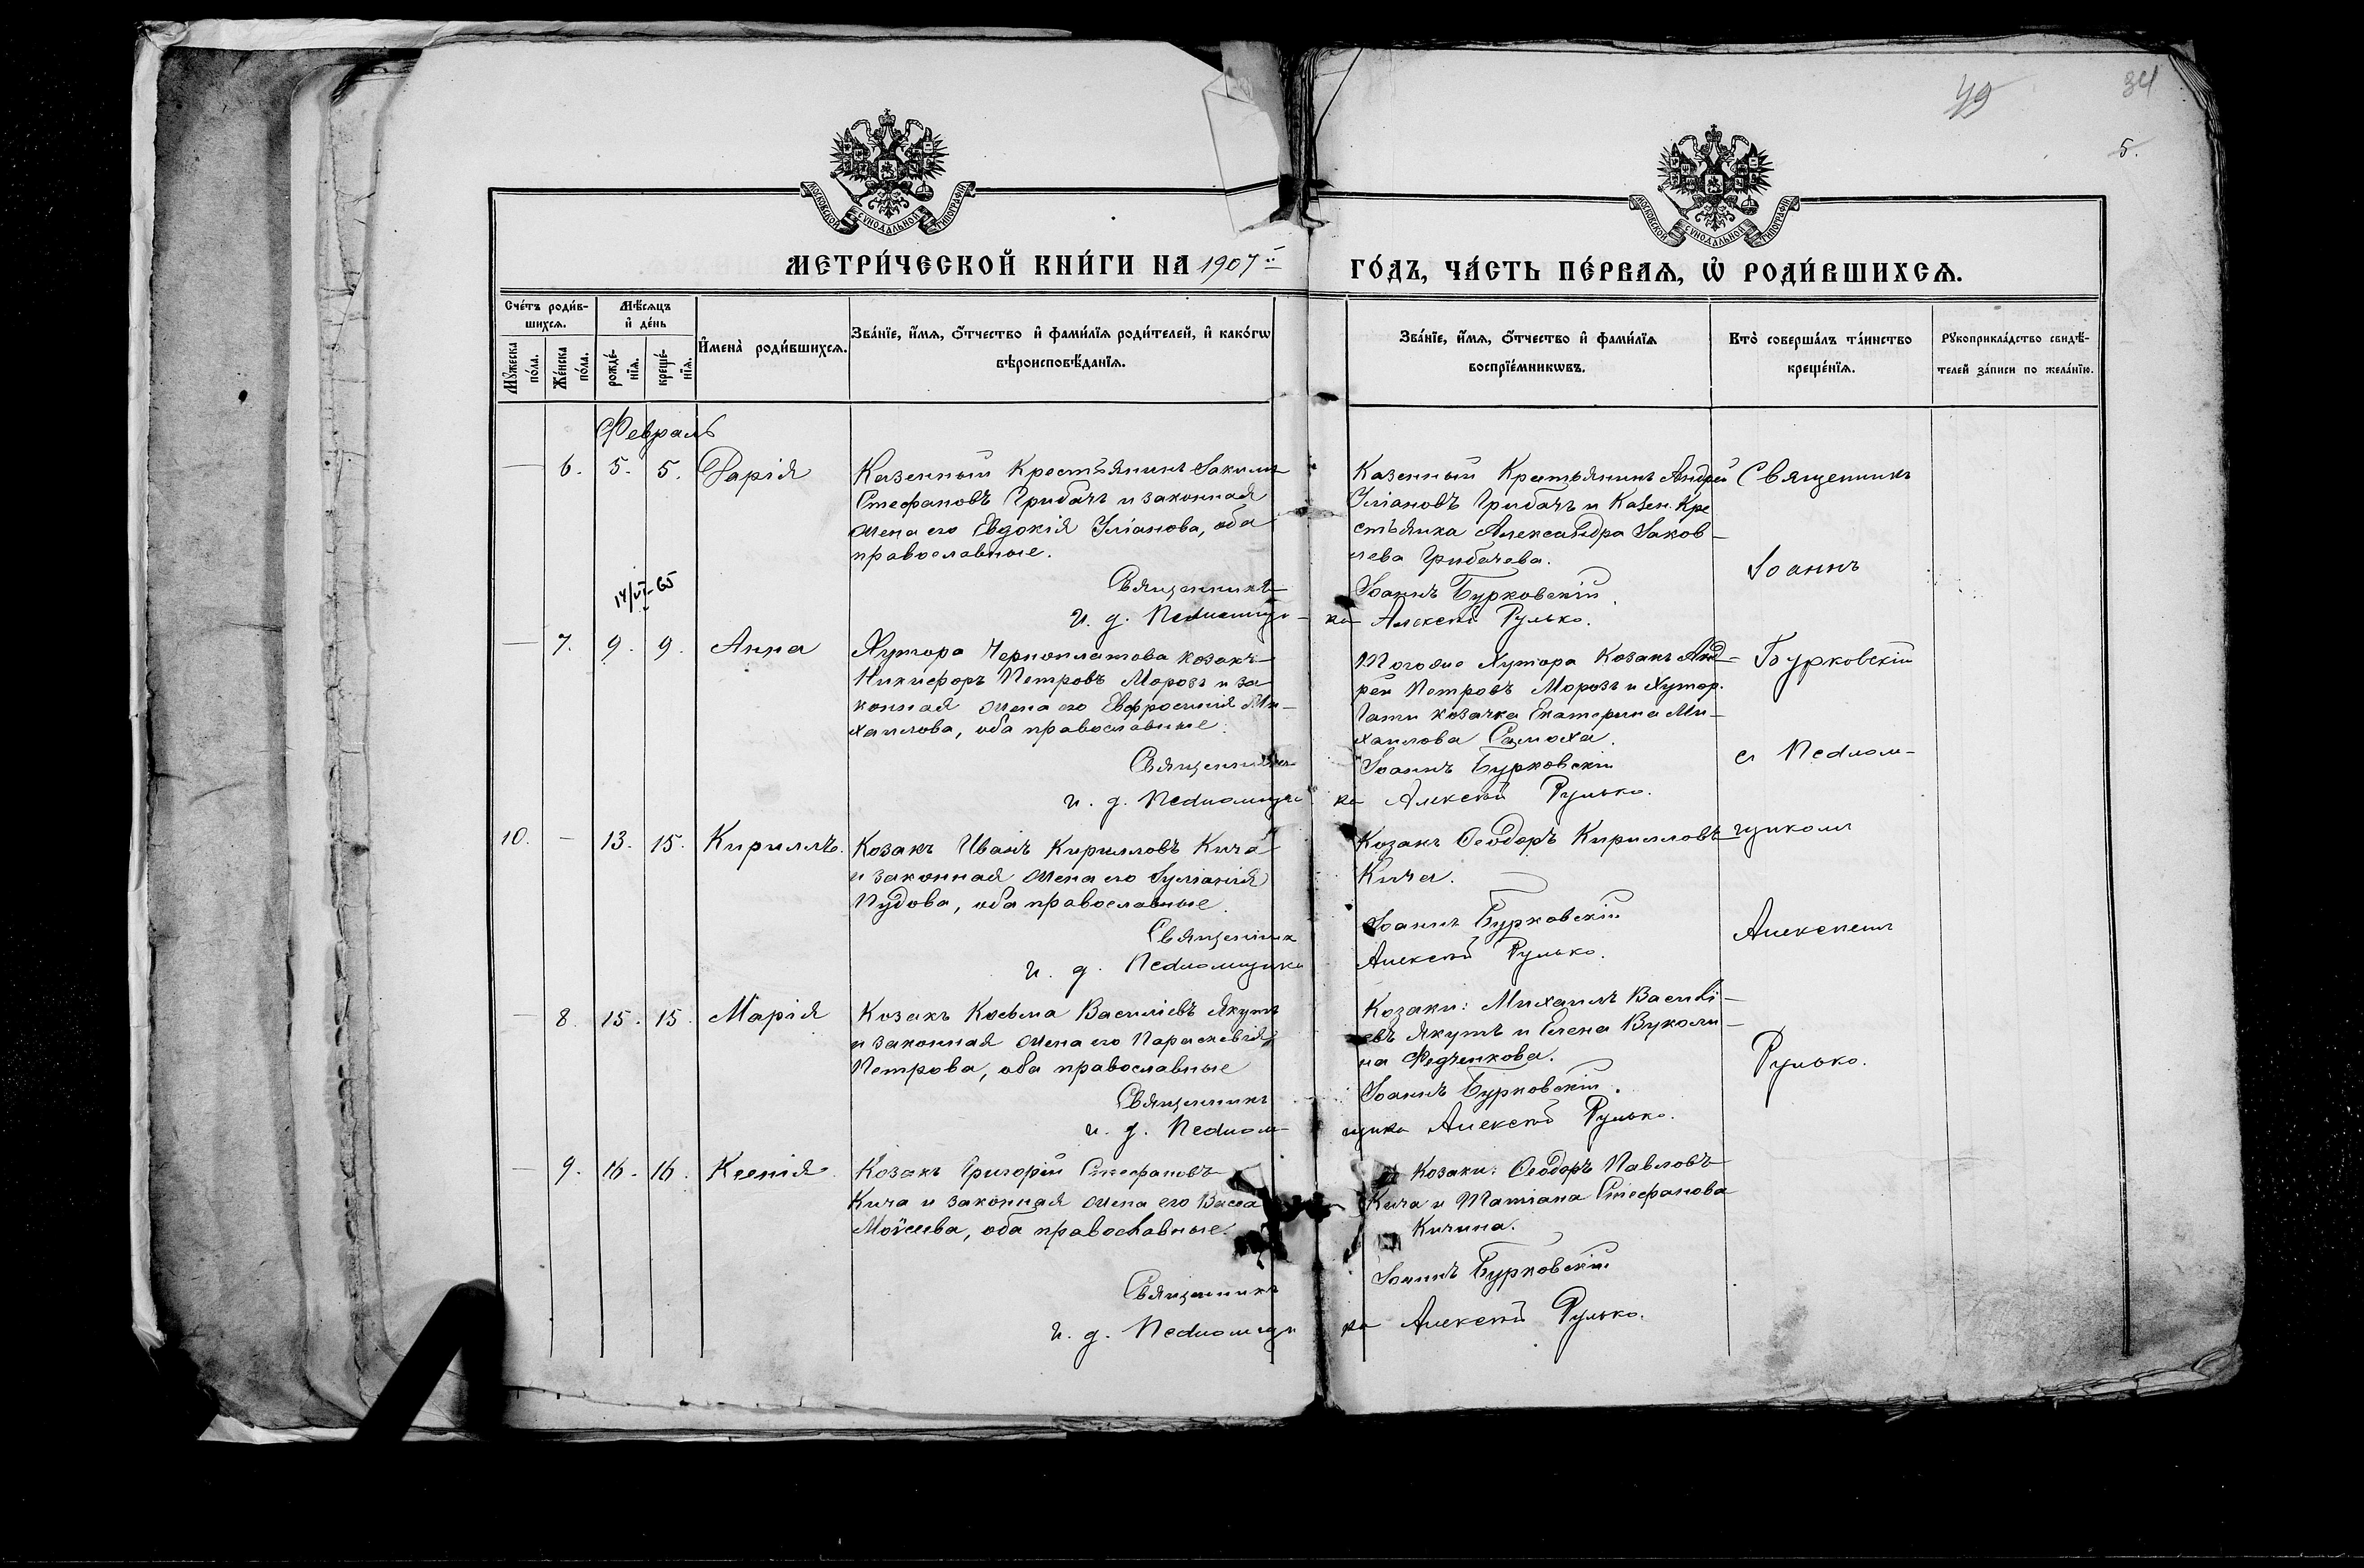 49
34
5.
МОСКОВСКОЙ СУНОДАЛЬНОЙ ТИПОГРАФІИ
МОСКОВСКОЙ СУНОДАЛЬНОЙ ТИПОГРАФІИ
МЕТРИ́ЧЕСКОЙ КНИ́ГИ НА 1907й ГО́ДЪ, ЧА́СТЬ ПЕ́РВАѦ, Ѡ҆ РОДИ́ВШИХСѦ.
Сче́тъ роди́в-
шихсѧ.
Мꙋ́жеска по́ла.
Же́нска по́ла.
Мѣ́сѧцъ
и҆ де́нь
рожде́-
нїѧ.
креще́-
нїѧ.
И҆мена̀ роди́вшихсѧ.
Зва́нїе, и҆́мѧ, ѻ҆́тчество и҆ фами́лїѧ роди́телей, и҆ како́гѡ
вѣроисповѣ́данїѧ.
Зва́нїе, и҆́мѧ, ѻ҆́тчество и҆ фами́лїѧ
воспрїе́мникѡвъ.
Кто̀ соверша́лъ та́инство
креще́нїѧ.
Рꙋкоприкла́дство свидѣ́-
телей за́писи по жела́нїю.
Февраль
— 6. 5. 5. Дарія
Казенный Крестьянинъ Іакимъ
Стефановъ Грибачъ и законная
жена его Евдокія Уліанова, оба
православные.
Священникъ
и. д. Псаломщи-
Казенный Крестьянинъ Андрей
Уліановъ Грибачъ и Казен. Кре
стьянка Александра Іаков-
лева Грибачева.
Іоаннъ Бурковскій
ка Алексѣй Рулько.
14/VI-65
— 7. 9. 9. Анна
Хутора Черноплатова козакъ
Никифоръ Петровъ Морозъ и за
конная жена его Евфросинія Ми-
хаилова, оба православные.
Священникъ
и. д. Псаломщи
Тогоже Хутора Козакъ Анд-
рей Петровъ Морозъ и Хутор.
Гати козачка Екатерина Ми-
хаилова Самоха.
Іоаннъ Бурковскій
ка Алексѣй Рулько.
10. — 13. 15. Кириллъ.
Козакъ Иванъ Кирилловъ Кича
и законная жена его Іуліанія
Пудова, оба православные.
Священник
и. д. Псаломщика
Козакъ Ѳеодоръ Кирилловъ
Кича.
Іоаннъ Бурковскій
Алексѣй Рулько.
— 8. 15. 15. Марія
Козакъ Косьма Василіевъ Якутъ
и законная жена его Параскевія
Петрова, оба православные
Священникъ
и. д. Псалом-
Козаки: Михаилъ Василі-
евъ Якутъ и Елена Вуколи-
на Федченкова.
Іоаннъ Бурковскій.
щика Алексѣй Рулько.
— 9. 16. 16. Ксенія.
Козакъ Григорій Стефановъ
Кича и законная жена его Васса
Моѵсеева, оба православные.
Священникъ
и. д. Псаломщи
Козаки: Ѳеодоръ Павловъ
Кича и Татіана Стефанова
Кичина.
Іоаннъ Бурковскій
ка Алексѣй Рулько.
Священникъ
Іоаннъ
Бурковскій
съ Псалом-
щикомъ
Алексѣемъ
Рулько.